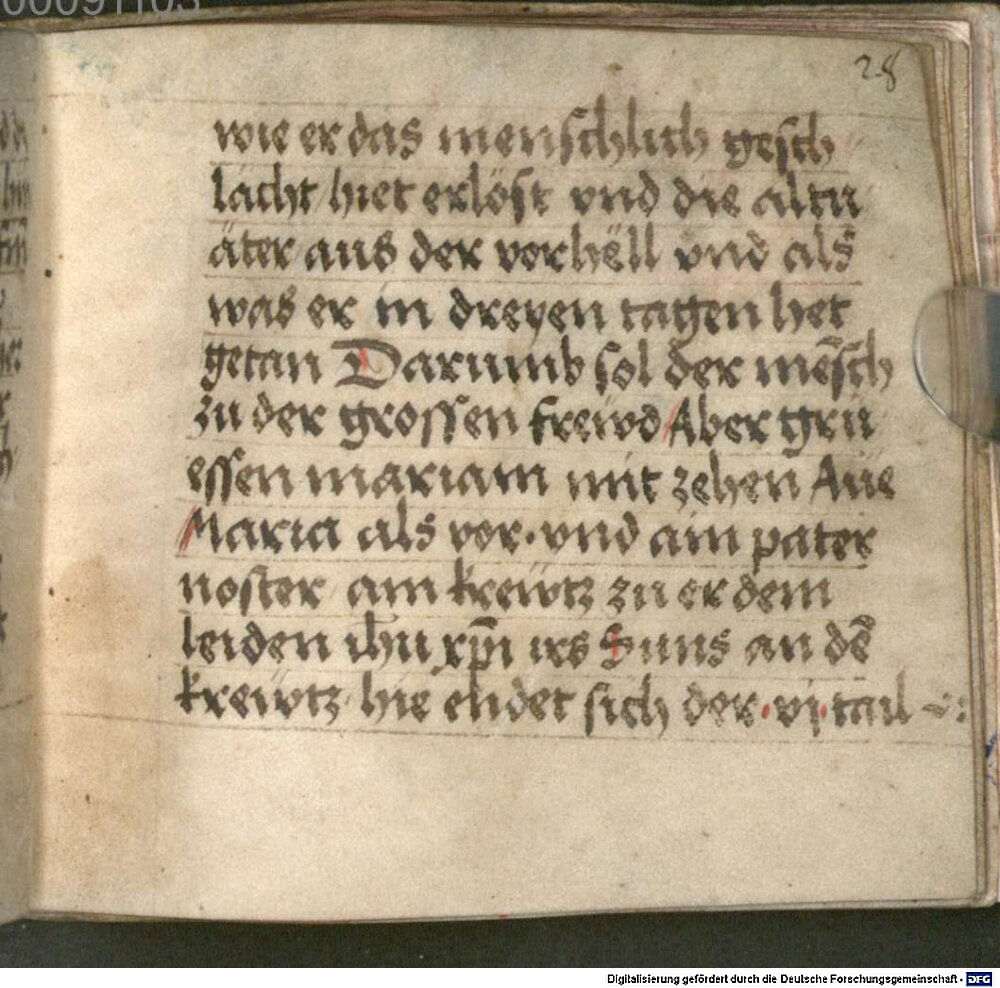 28
wie er das menschlich gesch
lächt hiet erlöst vnd die altu
äter aus der vorhëll vnd als
was er in dreyen tagen het
getan Darumb sol der mēsch
zu der grossen frewd Aber grü
essen mariam mit zehen Aue
Maria als vor · vnd ain pater
noster am kreẅtz zu er dem
leiden ihu xp̄i irs Suns an dē
kreẅtz hie endet sich der · vj · tail
Digitalisierung gefördert durch die Deutsche Forschungsgemeinschaft - DFG